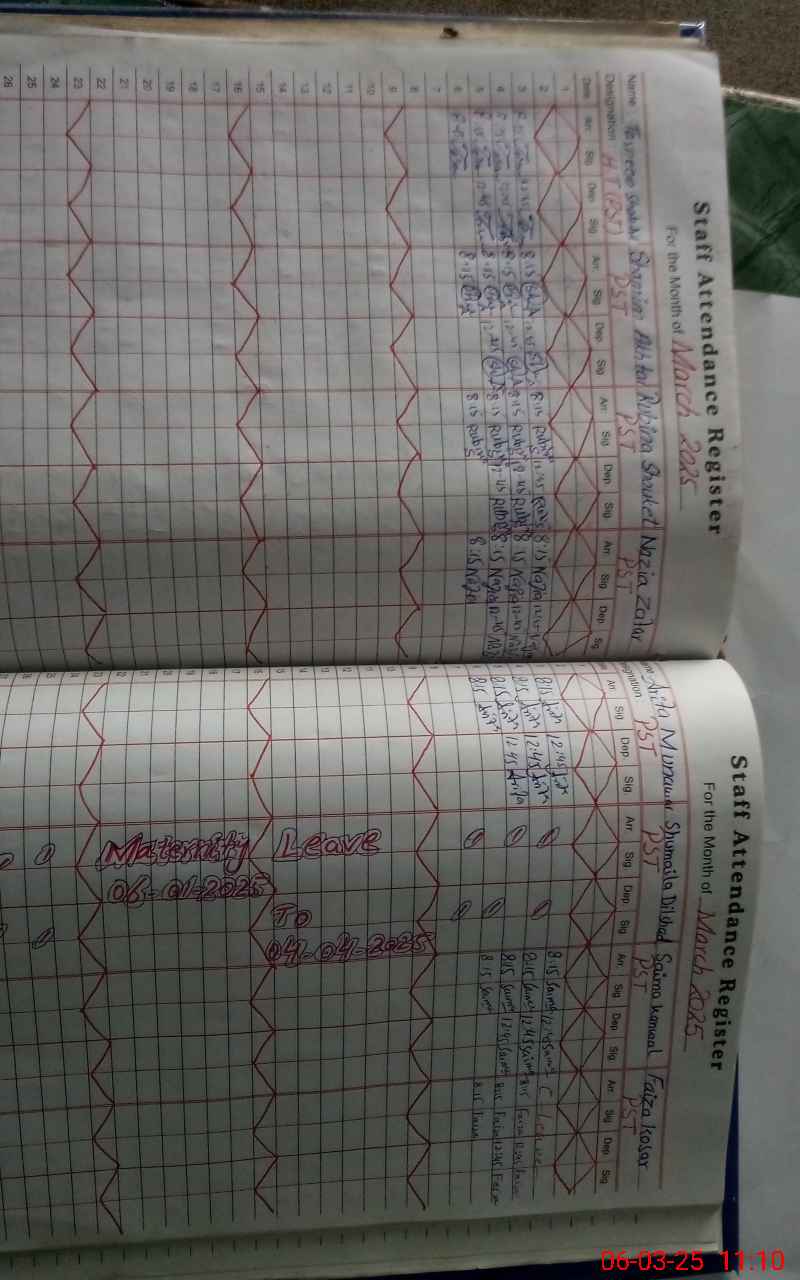 Staff Attendance Register
For the Month of March 2025
Name Shamim Akhtar Rubina Shouket Nazia Zafar
Designation H.T (PST) PST PST PST
Date Arr. Sig Dep. Sig Arr. Sig Dep. Sig Arr. Sig Dep. Sig Arr. Sig Dep. Sig
1
2
3 8:15 12:45 8:15 12:45 8:15 Rubina 12:45 Rubina 8:15 Nazia 12:45 Nazia
4 8:15 12:45 8:15 12:45 8:15 Rubina 12:45 Rubina 8:15 Nazia 12:45 Nazia
5 8:15 12:45 8:15 12:45 8:15 Rubina 12:45 Rubina 8:15 Nazia 12:45 Nazia
6 8:15 8:15 8:15 Rubina 8:15 Nazia
7
8
9
10
11
12
13
14
15
16
17
18
19
20
21
22
23
24
25
26
Staff Attendance Register
For the Month of March 2025
Munawar Shumaila Dilshad Saima Kanwal Faiza Kosar
PST PST PST PST
Arr. Sig Dep. Sig Arr. Sig Dep. Sig Arr. Sig Dep. Sig Arr. Sig Dep. Sig
8:15 12:45 8:15 Saima 12:45 Saima C Leave
8:15 12:45 8:15 Saima 12:45 Saima 8:15 Faiza 12:45 Faiza
8:15 12:45 8:15 Saima 12:45 Saima 8:15 Faiza 12:45 Faiza
8:15 8:15 Saima 8:15 Faiza
Maternity Leave
06-01-2025 To 04-04-2025
06-03-25 11:10